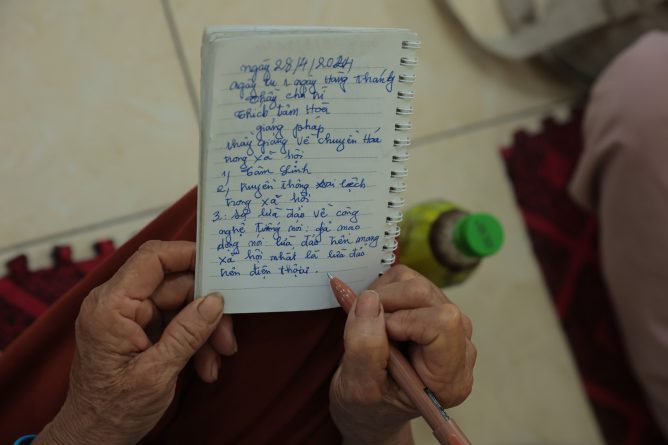 ngày 28/4/2024
ngày tu 1 ngày Hàng tháng
thầy chủ trì
thích tâm Hoà
giảng pháp
thầy giảng về chuyển Hoá
trong xã hội
1) tâm linh
2) truyền thông sai lệch
trong xã hội
3. sự lừa đảo về công
nghệ tiếng nói. giả mạo
dọng nói lừa đảo trên mạng
xã hội nhất là lừa đảo
trên điện thoại.